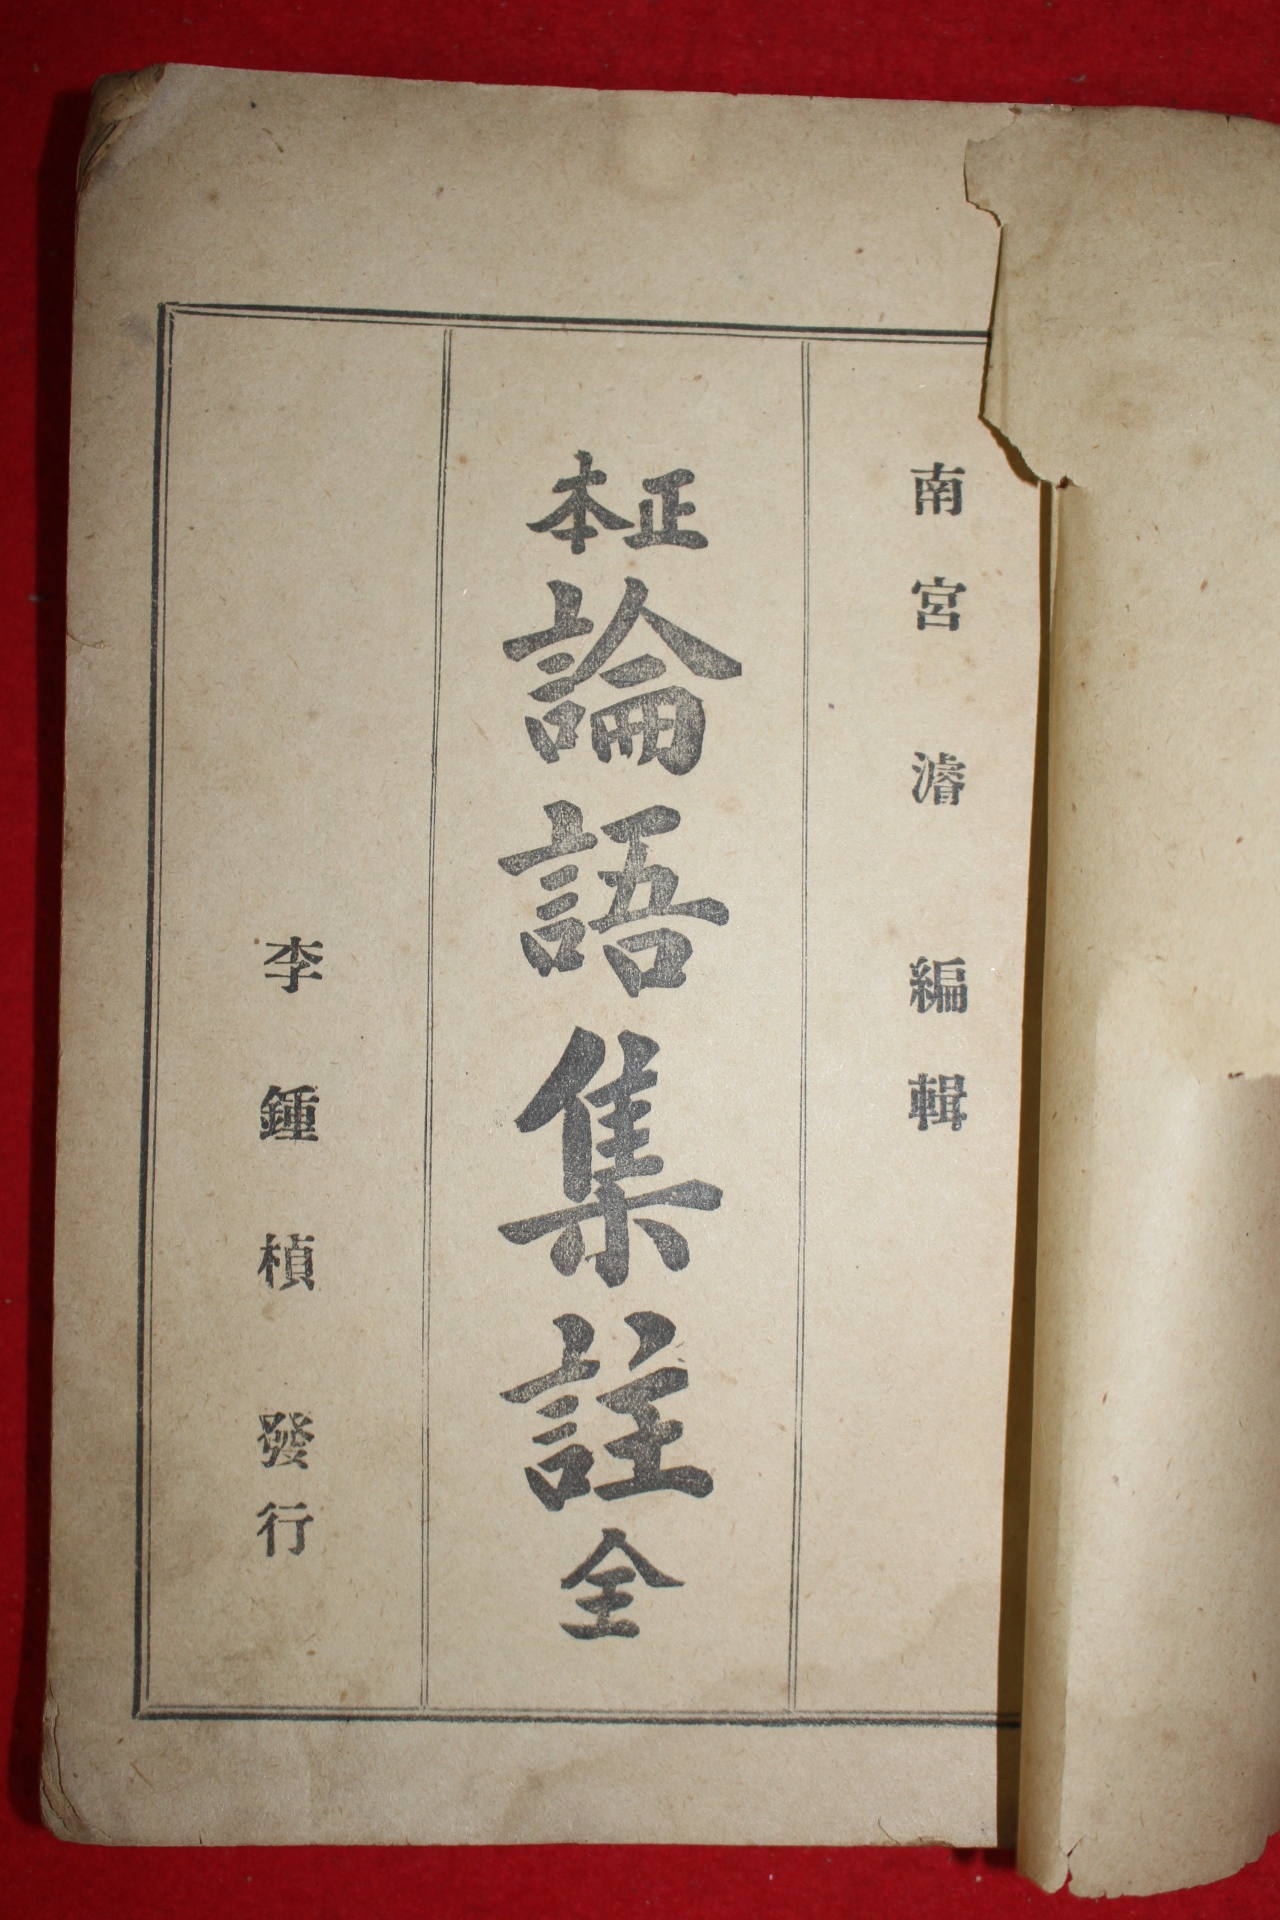 南宮濬 編輯
正本 論語集註 全
李鍾楨 發行